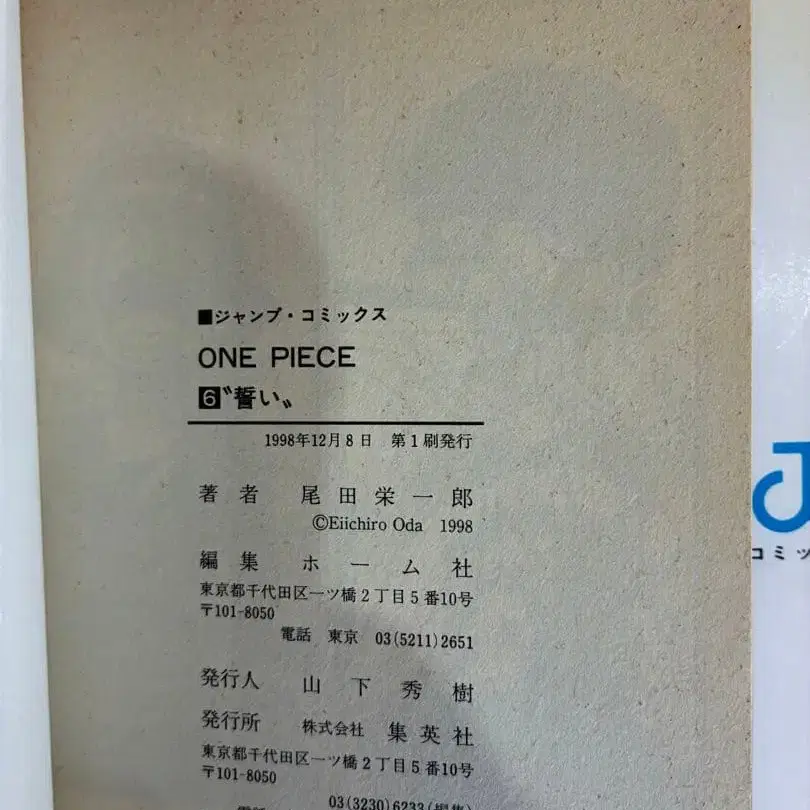 ■ジャンプ・コミックス
ONE PIECE
6〝誓い〟
1998年12月8日 第1刷発行
著者 尾田栄一郎
©Eiichiro Oda 1998
編集 ホーム社
東京都千代田区一ツ橋2丁目5番10号
〒101-8050
電話 東京 03(5211)2651
発行人 山下秀樹
発行所 株式会社 集英社
東京都千代田区一ツ橋2丁目5番10号
〒101-8050
03(3230)6233(編集)
J
コミッ